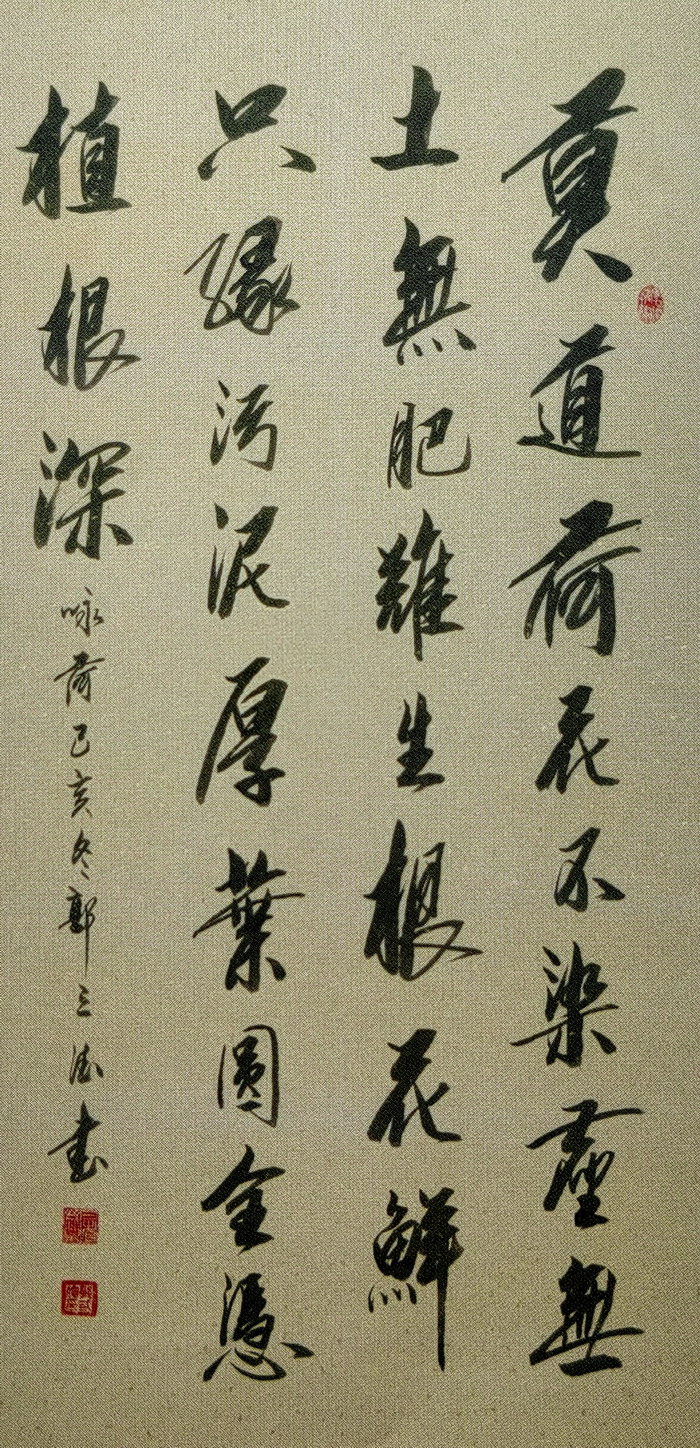 莫道荷花不染塵無
土無肥難生根花鮮
只緣污泥厚葉圓全憑
植根深 咏荷己亥冬郭三書